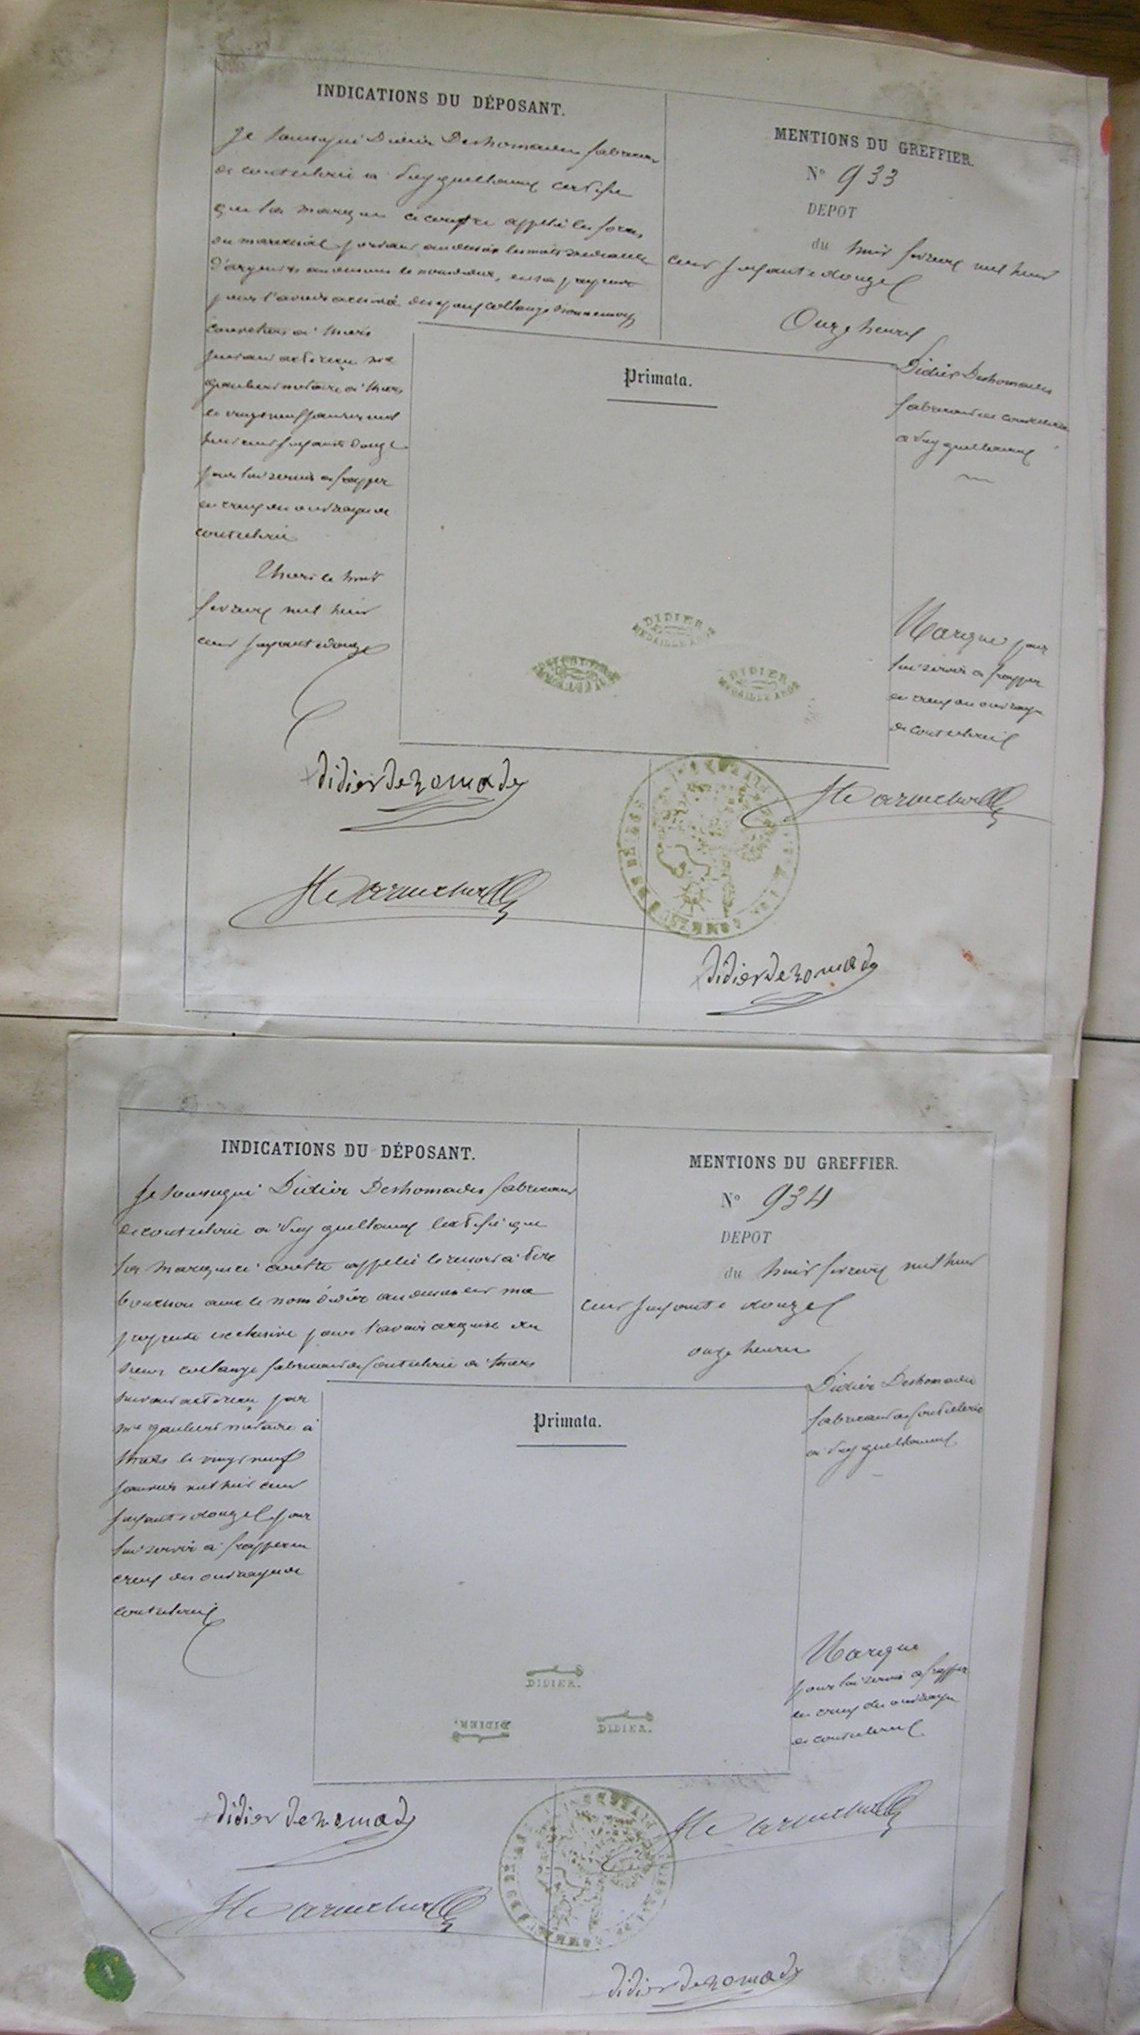 INDICATIONS DU DÉPOSANT.
Je soussigné Didier Deshomades fabricant
de coutellerie à Puy guillaume certifie
que la marque ci contre appelée le fer
du marechal portant au dessus les mots
d'argent et au dessous
pour l'avoir acheté
coutelier à Thiers
suivant acte reçu me
notaire à Thiers
le vingt neuf janvier mil
huit cent soixante douze
pour lui servir à frapper
en creux des ouvrages de
coutellerie
Thiers le huit
fevrier mil huit
cent soixante douze
MENTIONS DU GREFFIER.
N° 933
DEPOT
du huit fevrier mil huit
cent soixante douze
Onze heures
Primata.
Didier Deshomades
fabricant de coutellerie
à Puy guillaume
DIDIER
MEDAILLE ARGT
DIDIER
MEDAILLE ARGT
Marque pour
lui servir à frapper
en creux des ouvrages
de coutellerie
didier dezomade
didier dezomade
INDICATIONS DU DÉPOSANT.
Je soussigné Didier Deshomades fabricant
de coutellerie à Puy guillaume certifie que
la marque ci contre appelée le à tire
bouchon avec le nom Didier au dessous est ma
propriété exclusive pour l'avoir acquise du
sieur collange fabricant de coutellerie à Thiers
suivant acte reçu par
me notaire à
Thiers le vingt neuf
janvier mil huit cent
soixante douze pour
lui servir à frapper en
creux des ouvrages de
coutellerie
MENTIONS DU GREFFIER.
N° 934
DEPOT
du huit fevrier mil huit
cent soixante douze
onze heures
Primata.
Didier Deshomades
fabricant de coutellerie
à Puy guillaume
DIDIER.
DIDIER.
DIDIER.
Marque
pour lui servir à frapper
en creux des ouvrages
de coutellerie
didier dezomade
didier dezomade